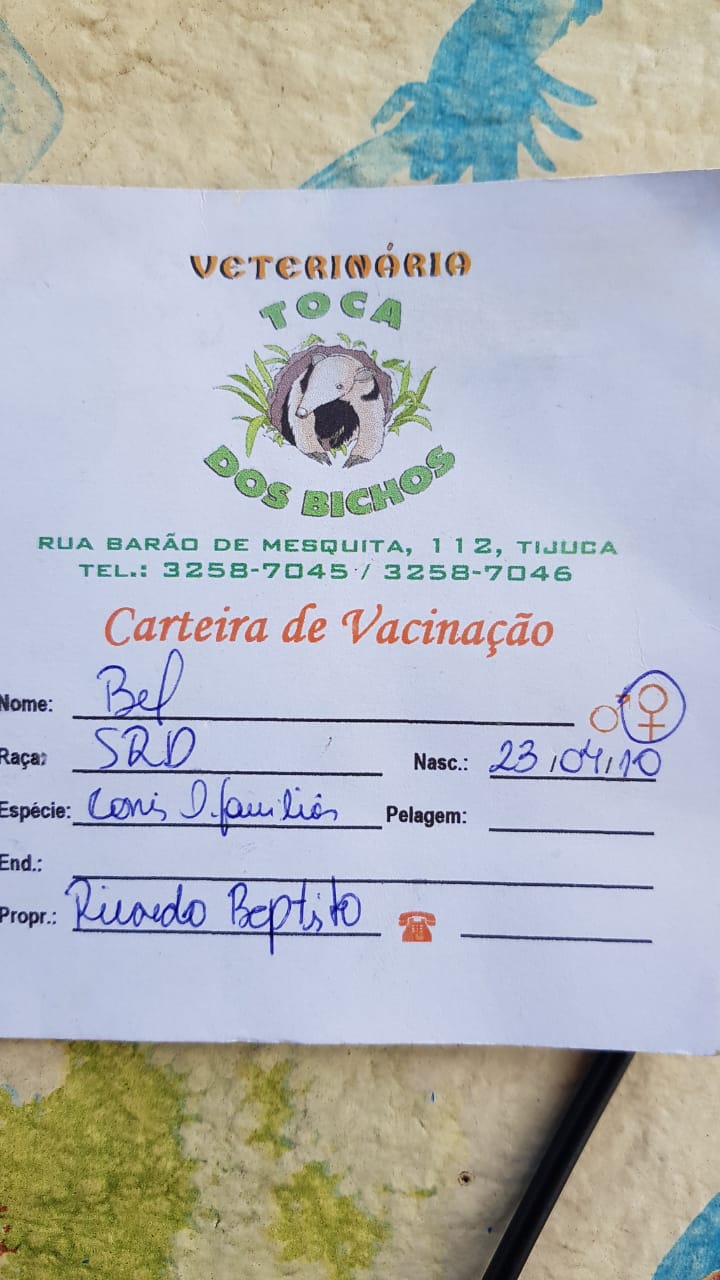 VETERINÁRIA
TOCA
DOS BICHOS
RUA BARÃO DE MESQUITA, 112, TIJUCA
TEL.: 3258-7045 / 3258-7046
Carteira de Vacinação
Nome: Bel ♂ ♀
Raça: SRD Nasc.: 23/04/10
Espécie: Canis D. familiás Pelagem:
End.:
Propr.: Ricardo Baptista